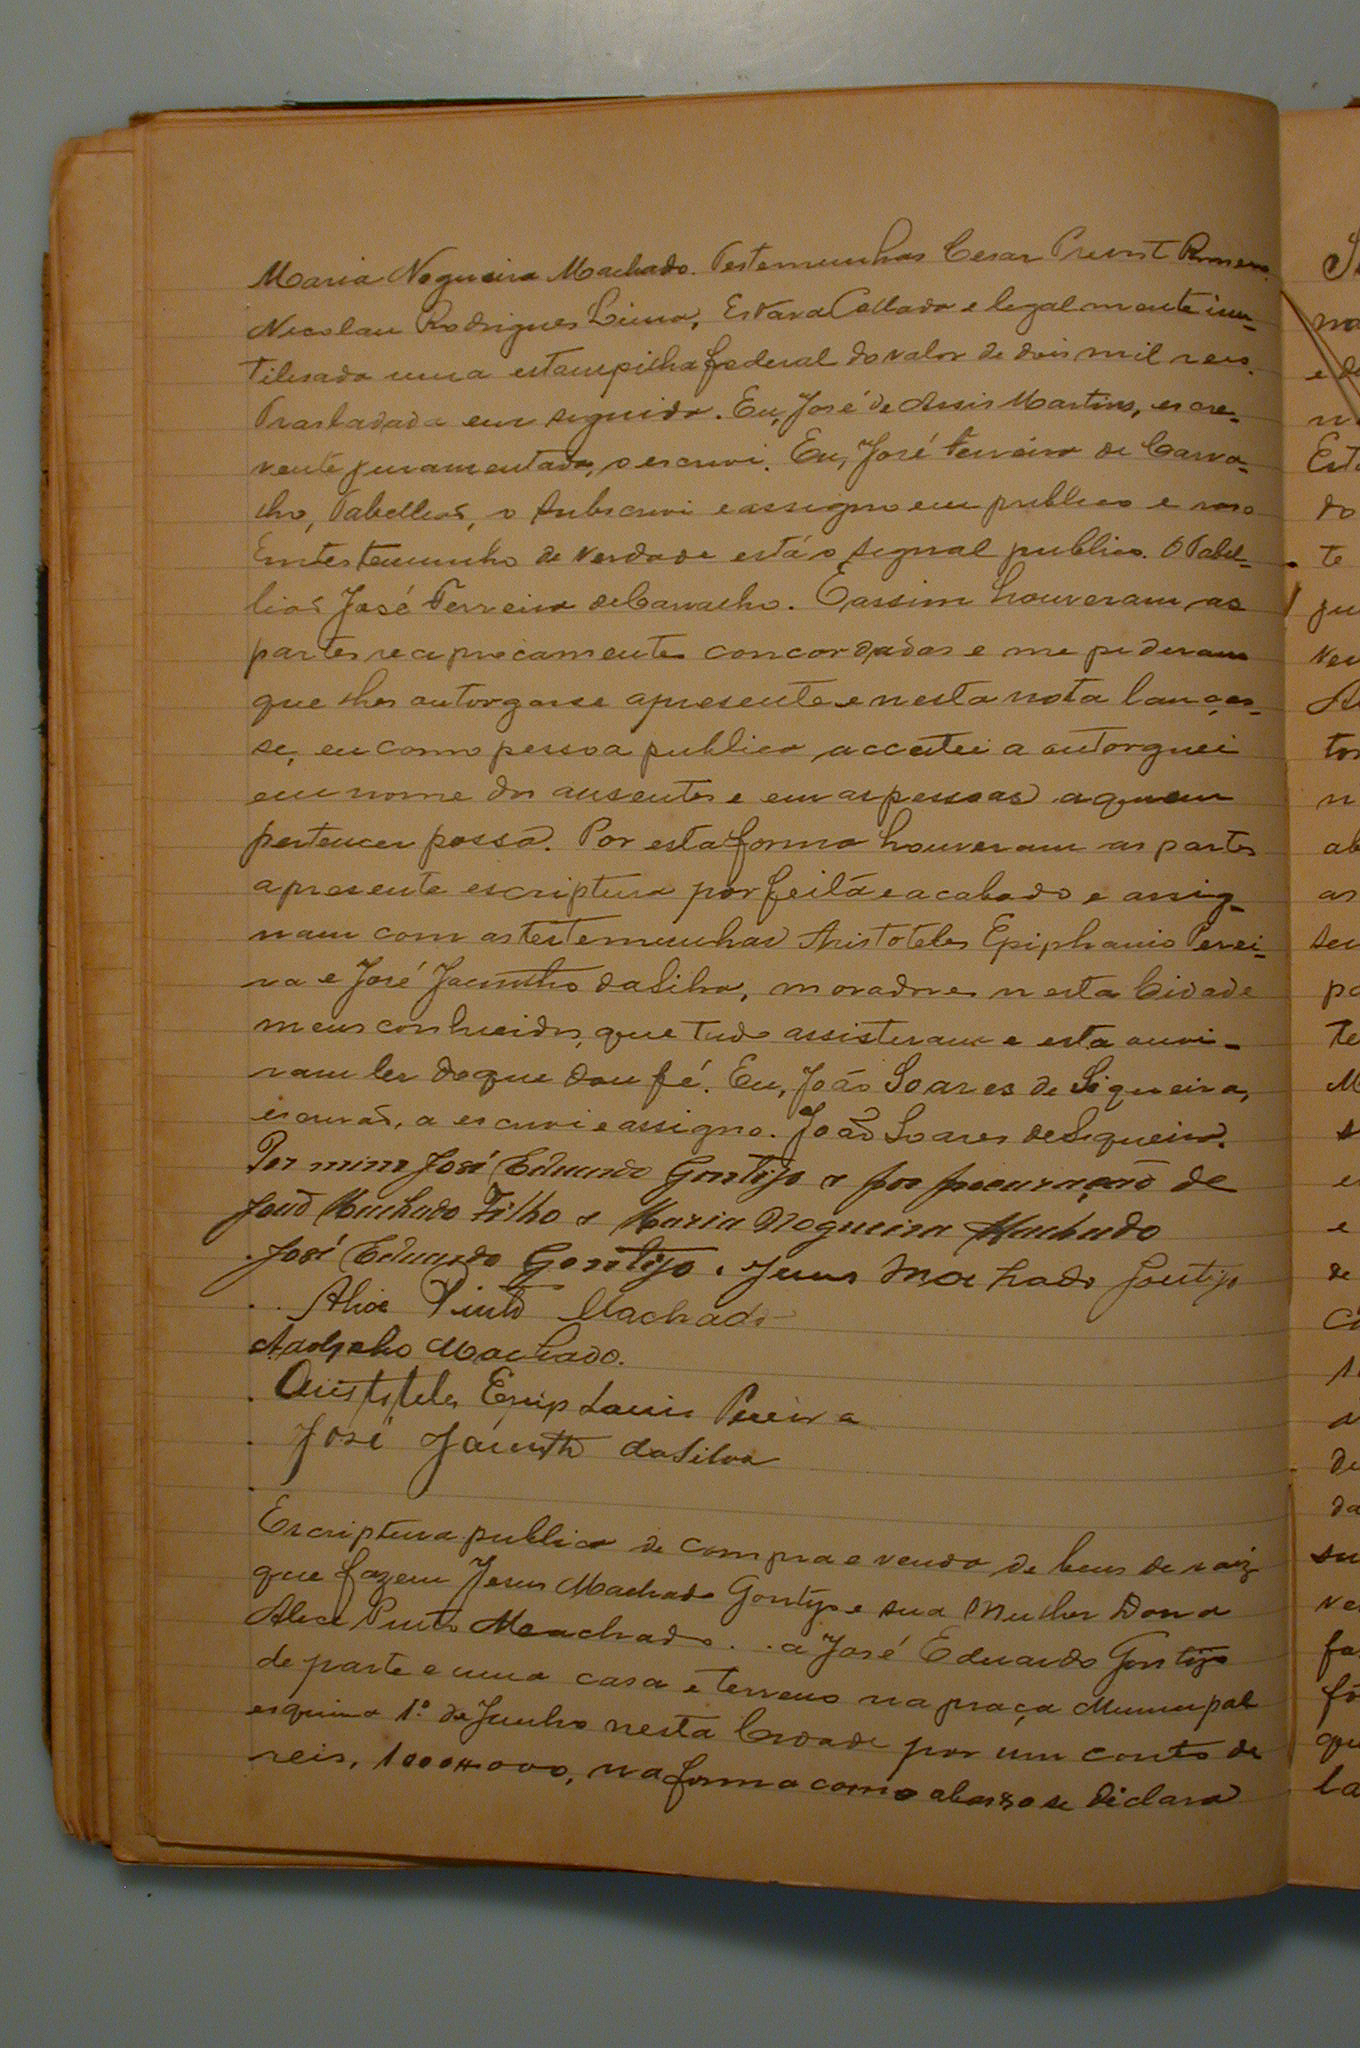 Maria Nogueira Machado. Testemunhas Cesar Romero
Nicolau Rodrigues Lima, Estava Collada e legalmente inu-
tilisada uma estampilha federal do valor de dois mil reis.
Trasladada em seguida. Eu, José de Assis Martins, escre-
vente juramentado, o escrevi. Eu, José Ferreira de Carva-
lho, Tabellião, o subscrevi e assigno em publico e raso
Em testemunho de verdade está o signal publico. O Tabel-
lião José Ferreira de Carvalho. E assim houveram as
partes reciprocamente concordadas e me pediram
que lhes outorgasse a presente e nesta nota lanças-
se, eu como pessoa publica acceitei a outorguei
em nome dos ausentes e em as pessoas a quem
pertencer possa. Por esta forma houveram as partes
a presente escriptura por feita e acabada e assig-
nam com as testemunhas Aristoteles Epiphanio Perei-
ra e José Jacintho da Silva, moradores nesta Cidade
meus conhecidos, que tudo assisteram e esta ouvi-
ram ler do que dou fé. Eu, João Soares de Siqueira,
escrivão, a escrevi e assigno. João Soares de Siqueira.
Por mim José Eduardo Gontijo e por procuração de
João Machado Filho e Maria Nogueira Machado
José Eduardo Gontijo. Jesus Machado Gontijo
Alice Pinto Machado
Adolpho Machado.
Aristoteles Epiphanio Pereira
José Jacintho da Silva
Escriptura publica de compra e venda de bens de raiz
que fazem Jesus Machado Gontijo e sua Mulher Dona
Alice Pinto Machado. . a José Eduardo Gontijo
de parte e uma casa e terreno na praça Municipal
esquina 1º de Junho nesta Cidade por um conto de
reis, 1000#000, na forma como abaixo se declara